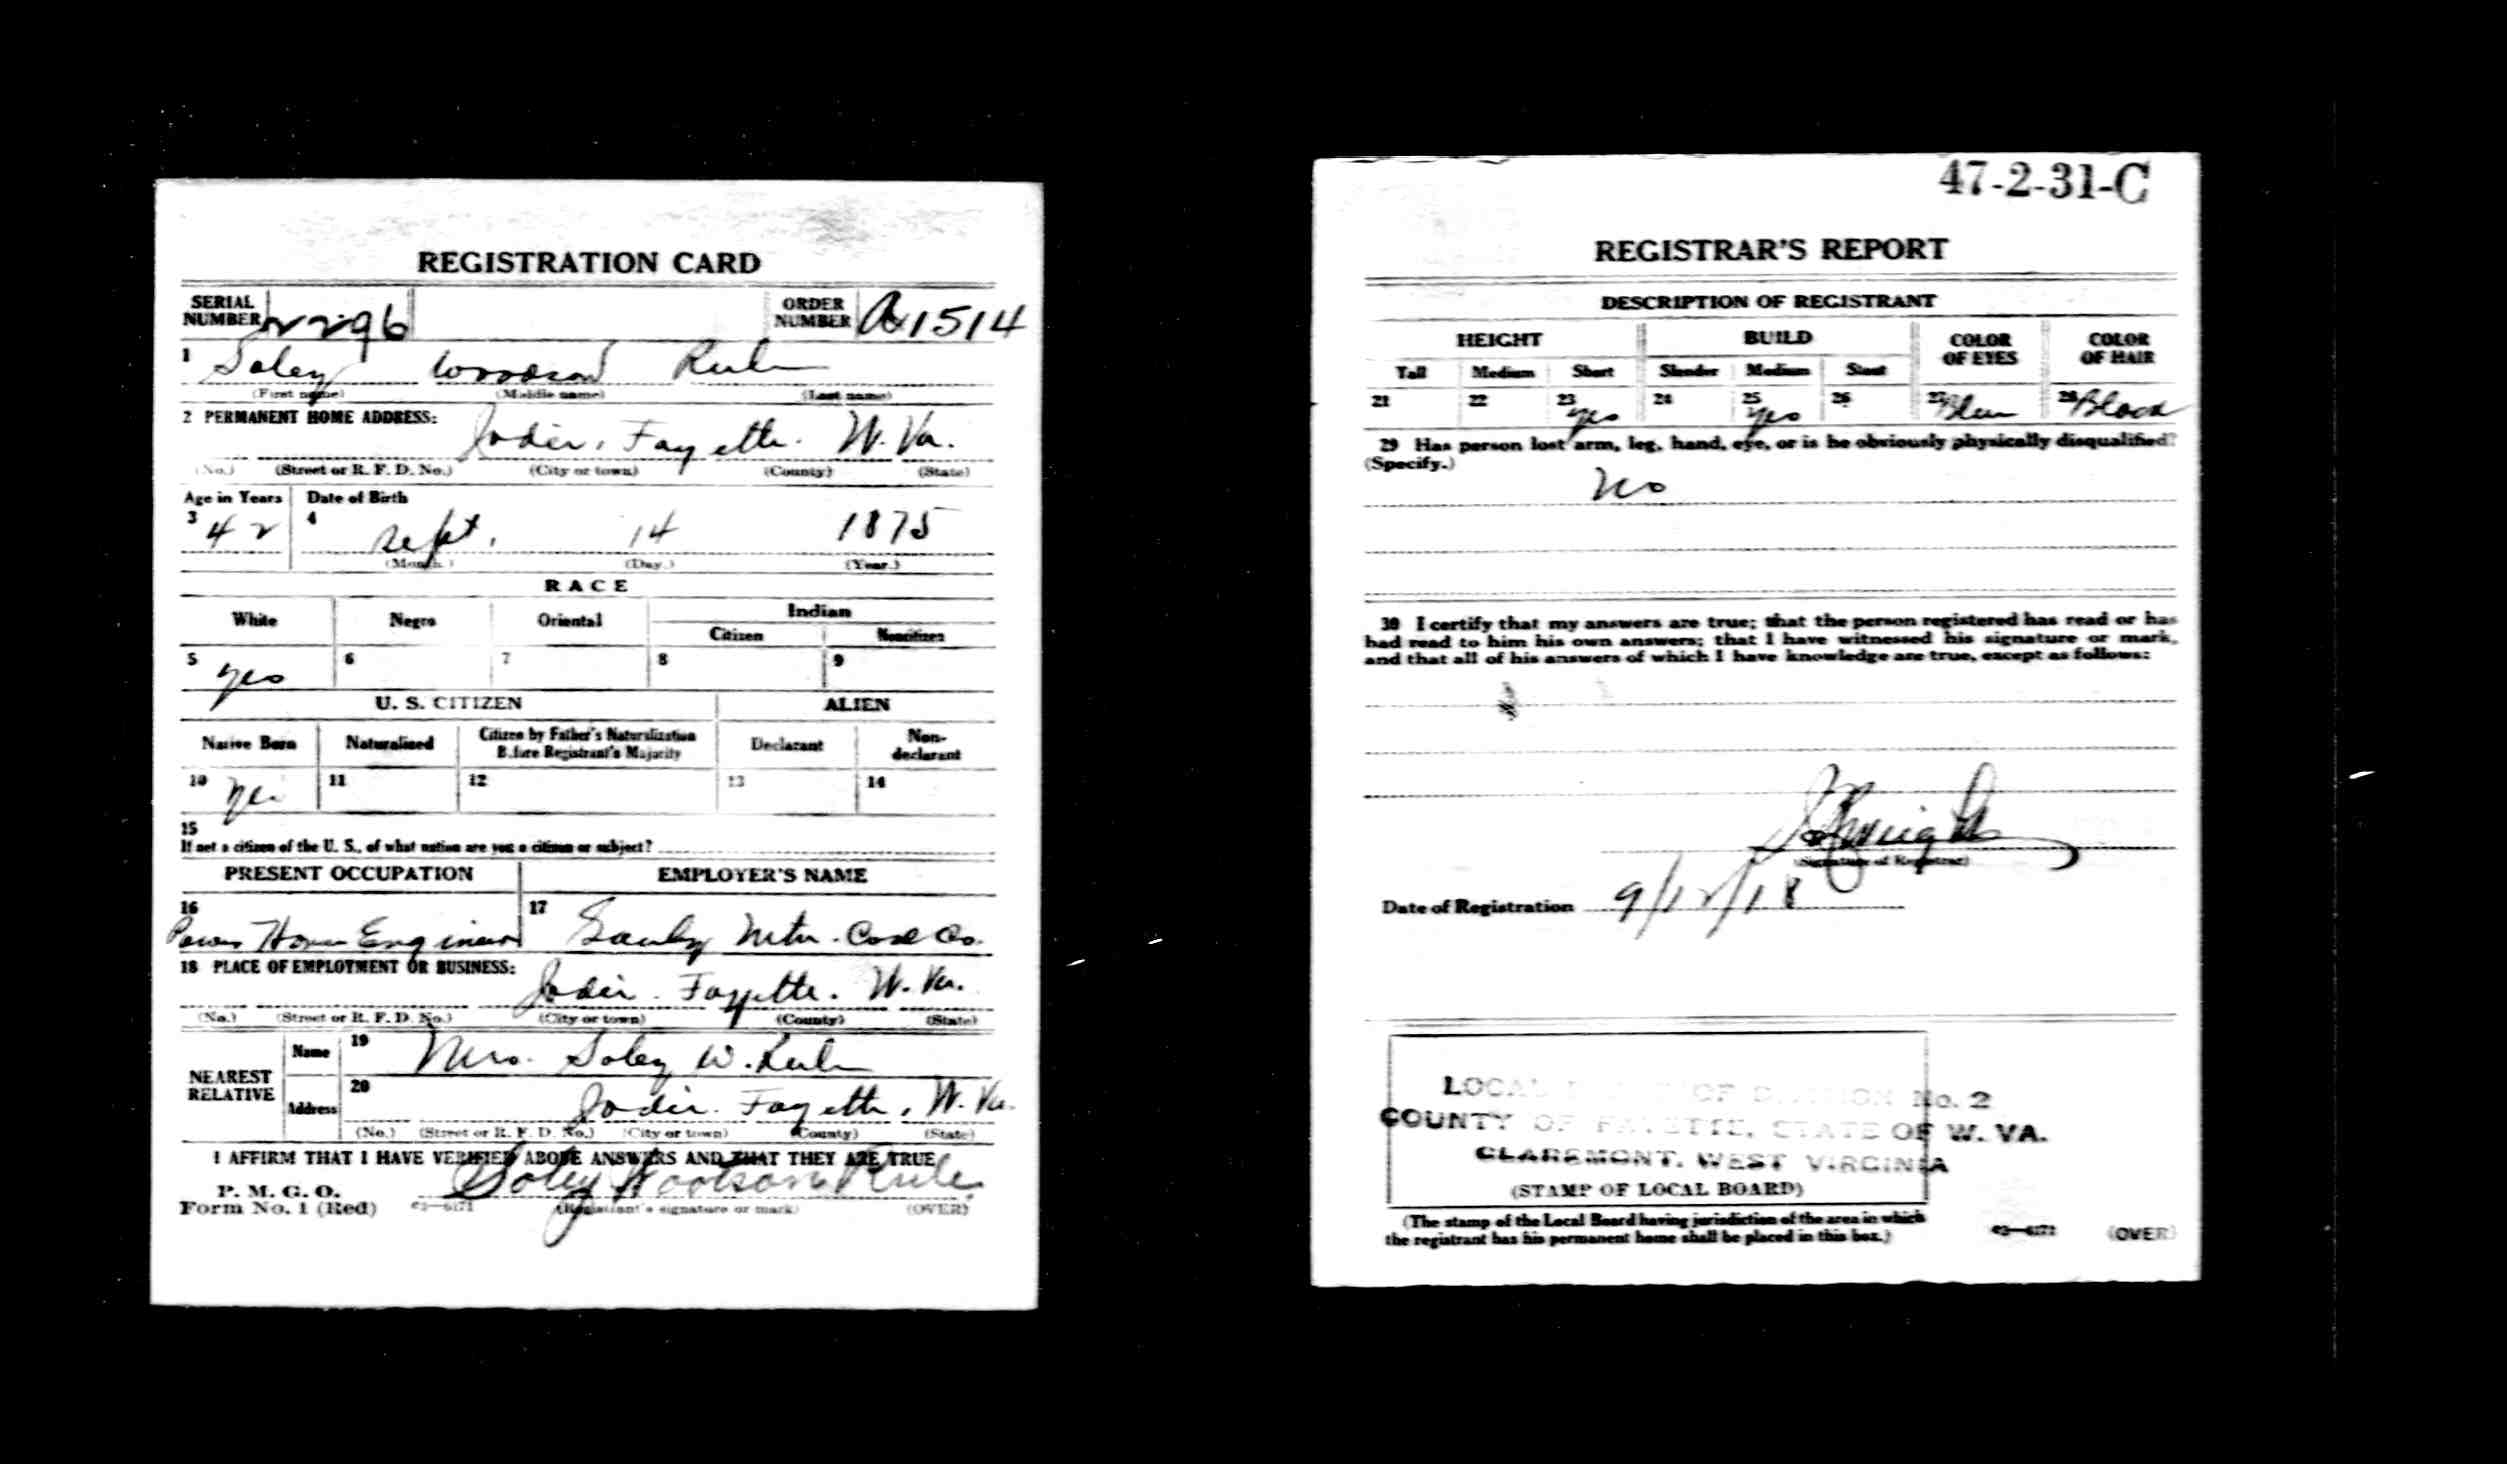 REGISTRATION CARD
SERIAL NUMBER 2296
ORDER NUMBER A1514
1 Soley Woodson Rule
(First name) (Middle name) (Last name)
2 PERMANENT HOME ADDRESS:
Jodie, Fayette. W. Va.
(No.) (Street or R. F. D. No.) (City or town) (County) (State)
Age in Years Date of Birth
3 42 4 Sept. 14 1875
(Month.) (Day.) (Year.)
RACE
White Negro Oriental Indian
Citizen Noncitizen
5 yes 6 7 8 9
U. S. CITIZEN ALIEN
Native Born Naturalized Citizen by Father's Naturalization Before Registrant's Majority Declarant Non-declarant
10 yes 11 12 13 14
15
If not a citizen of the U. S., of what nation are you a citizen or subject?
PRESENT OCCUPATION EMPLOYER'S NAME
16 Power House Engineer 17 Gauley Mtn. Coal Co.
18 PLACE OF EMPLOYMENT OR BUSINESS:
Jodie. Fayette. W. Va.
(No.) (Street or R. F. D. No.) (City or town) (County) (State)
NEAREST RELATIVE
Name 19 Mrs. Soley W. Rule
Address 20 Jodie. Fayette, W. Va.
(No.) (Street or R. F. D. No.) (City or town) (County) (State)
I AFFIRM THAT I HAVE VERIFIED ABOVE ANSWERS AND THAT THEY ARE TRUE
P. M. G. O.
Form No. 1 (Red) Soley Wootson Rule
03—6171 (Registrant's signature or mark) (OVER)
47-2-31-C
REGISTRAR'S REPORT
DESCRIPTION OF REGISTRANT
HEIGHT BUILD COLOR OF EYES COLOR OF HAIR
Tall Medium Short Slender Medium Stout
21 22 23 yes 24 25 yes 26 27 Blue 28 Black
29 Has person lost arm, leg, hand, eye, or is he obviously physically disqualified?
(Specify.)
No
30 I certify that my answers are true; that the person registered has read or has
had read to him his own answers; that I have witnessed his signature or mark,
and that all of his answers of which I have knowledge are true, except as follows:
(Signature of Registrar)
Date of Registration 9/12/18
LOCAL BOARD OF DIVISION No. 2
COUNTY OF FAYETTE, STATE OF W. VA.
CLAREMONT, WEST VIRGINIA
(STAMP OF LOCAL BOARD)
(The stamp of the Local Board having jurisdiction of the area in which
the registrant has his permanent home shall be placed in this box.)
03—6171 (OVER)